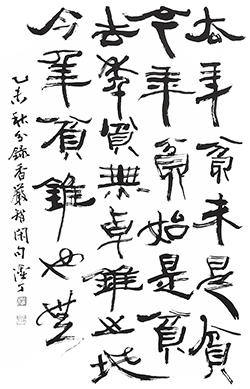 去年貧未是貧
今年貧始是貧
去年貧無卓錐之地
今年貧錐也無
乙未秋分錄香嚴智閑句